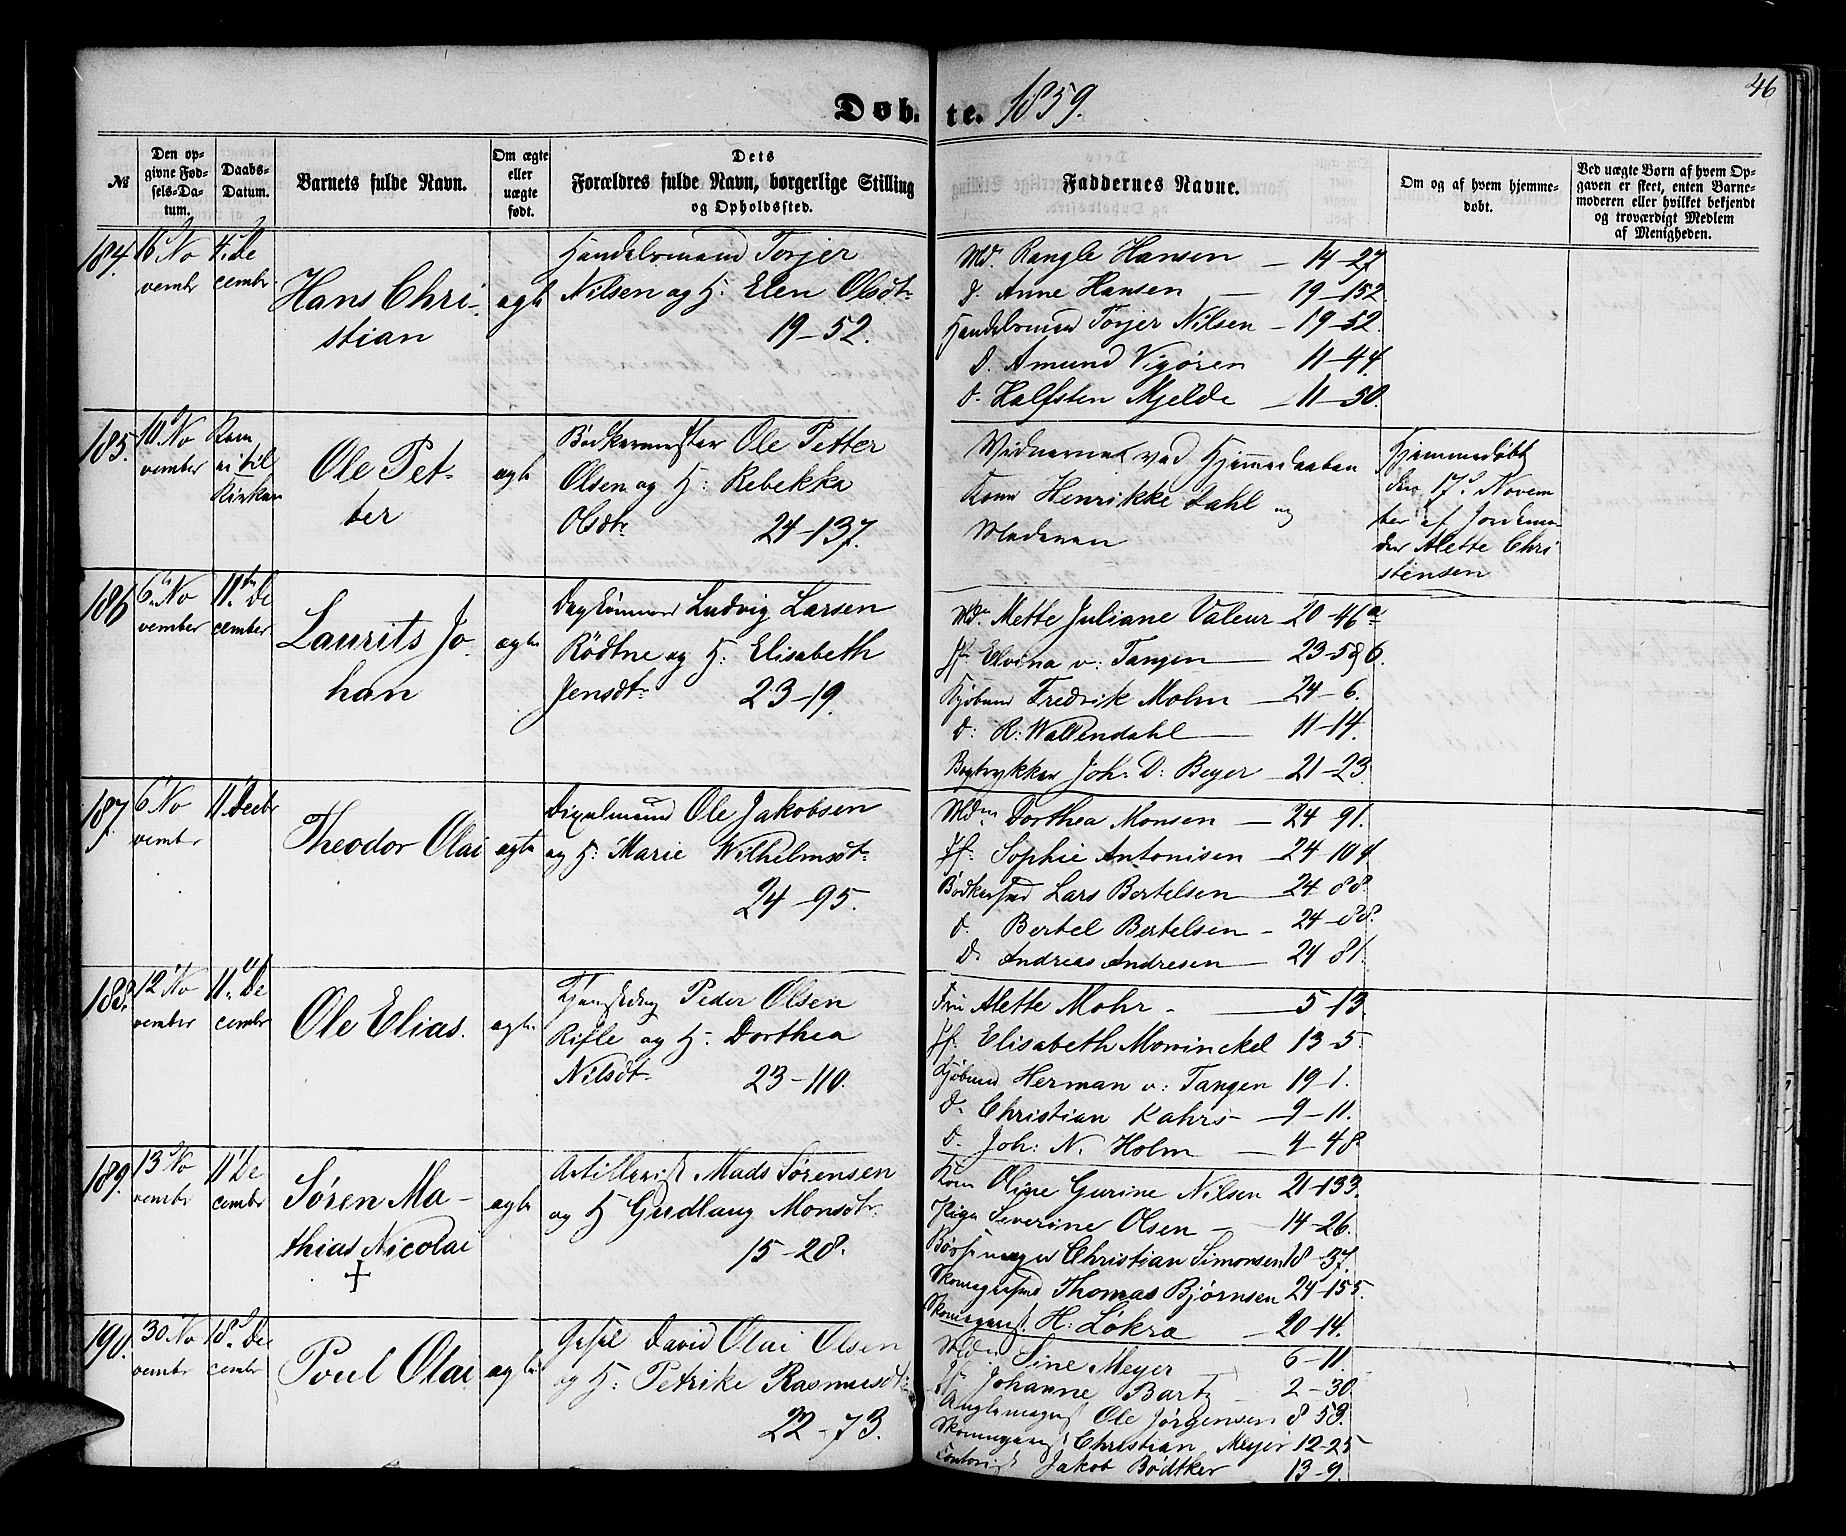 46
Døbte. 1859.
№
Den opgivne Fødsels-Datum.
Daabs-Datum.
Barnets fulde Navn.
Om ægte eller uægte født.
Dets Forældres fulde Navn, borgerlige Stilling og Opholdssted.
Faddernes Navne.
Om og af hvem hjemmedøbt.
Ved uægte Børn af hvem Opgaven er skeet, enten Barnemoderen eller hvilket bekjendt og troværdigt Medlem af Menigheden.
184.
16 No
vembr
4. De
cembr
Hans Chri-
stian
ægte
Handelsmand Torjer
Nilsen og H. Elen Olsdtr
19-52.
Md. Rangle Hansen - 14-27
J. Anne Hansen - 19-152.
Handelsmand Torjer Nilsen - 19-52.
D. Amund Vigøren 11-44
D. Halfsten Mjelde - 11-30.
185.
10. No
vember
Kom
ei til
Kirken
Ole Pet-
ter
ægte
Bødkermester Ole Petter
Olsen og H: Rebekka
Olsdtr 24-137.
Vidnerne ved Hjemmedaaben
Kone Henrikke Dahl og
Moderen
Hjemmedøbt
den 17d Novem
ber af Jordemo-
der Alette Chri
stensen
186
6. No
vember
11. De
cember
Laurits Jo-
han
ægte
Ludvig Larsen
Rödtne og H: Elisabeth
Jensdtr 23-19.
Md. Mette Juliane Valeur 20-46a
Jf. Elvina v: Tangen - 23-58 6.
Kjøbmd Fredrik Mohn - 24-6.
D: R: Wallendahl - 11-14.
Bogtrykker Joh: D: Beyer - 21-23
187
6 No
vembr
11. Decbr
Theodor Olai
ægte
Ole Jakobsen
og H: Marie Wilhelmsdtr
24-95.
Mdm Dorthea Monsen - 24 91.
Jf: Sophie Antonisen - 24-104
Bødkersvd Lars Bertelsen - 24 88.
D. Bertel Bertelsen - 24-88.
D. Andreas Andresen - 24 81.
188.
12 No
vember
11. De
cembr
Ole Elias.
ægte
Peder Olsen
Rifle og H. Dorthea
Nilsdtr 23-110.
Fru Alette Mohr - 5-13
Jf. Elisabeth Mowinckel 13-5.
Kjøbmd Herman v: Tangen 19-1.
D. Christian Kahrs - 9-11.
D. Joh: N. Holm - 4-48
189.
13 No
vembr
11 De
cembr
Søren Ma-
thias Nicolai
+
ægte
Artillerist Mads Sørensen
og H Gudlaug Monsdtr.
15-28.
Kone Oline Gurine Nilsen 21-133
Pige Severine Olsen - 14-26.
Christian Simonsen 18-37.
Skomagersvd Thomas Bjørnsen 24-155.
H: Løkra - 20-14.
190.
30 No
vembr
18. De
cembr
Poul Olai
ægte
David Olai Olsen
og H: Petrike Rasmusdtr
22-73.
Mdm Sine Meyer 6-11.
Jf. Johanne Bartz 2-30.
Ole Jørgensen 8 58.
Christian Meyer 12-25
Jakob Bødtker 13-9.